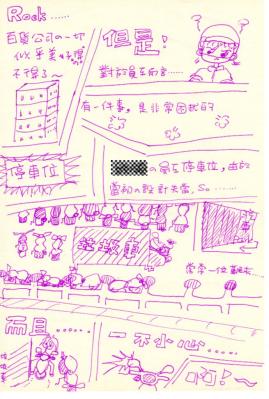 Rock......
百貨公司の一切
似乎美好得
不得了～
但是!
對於員工而言......
有一件事，是非常困擾的
停車位
の員工停車位，由於
當初の設計失當，So......
垃圾車
常常一位難求...
而且......
一不小心......
啊!～